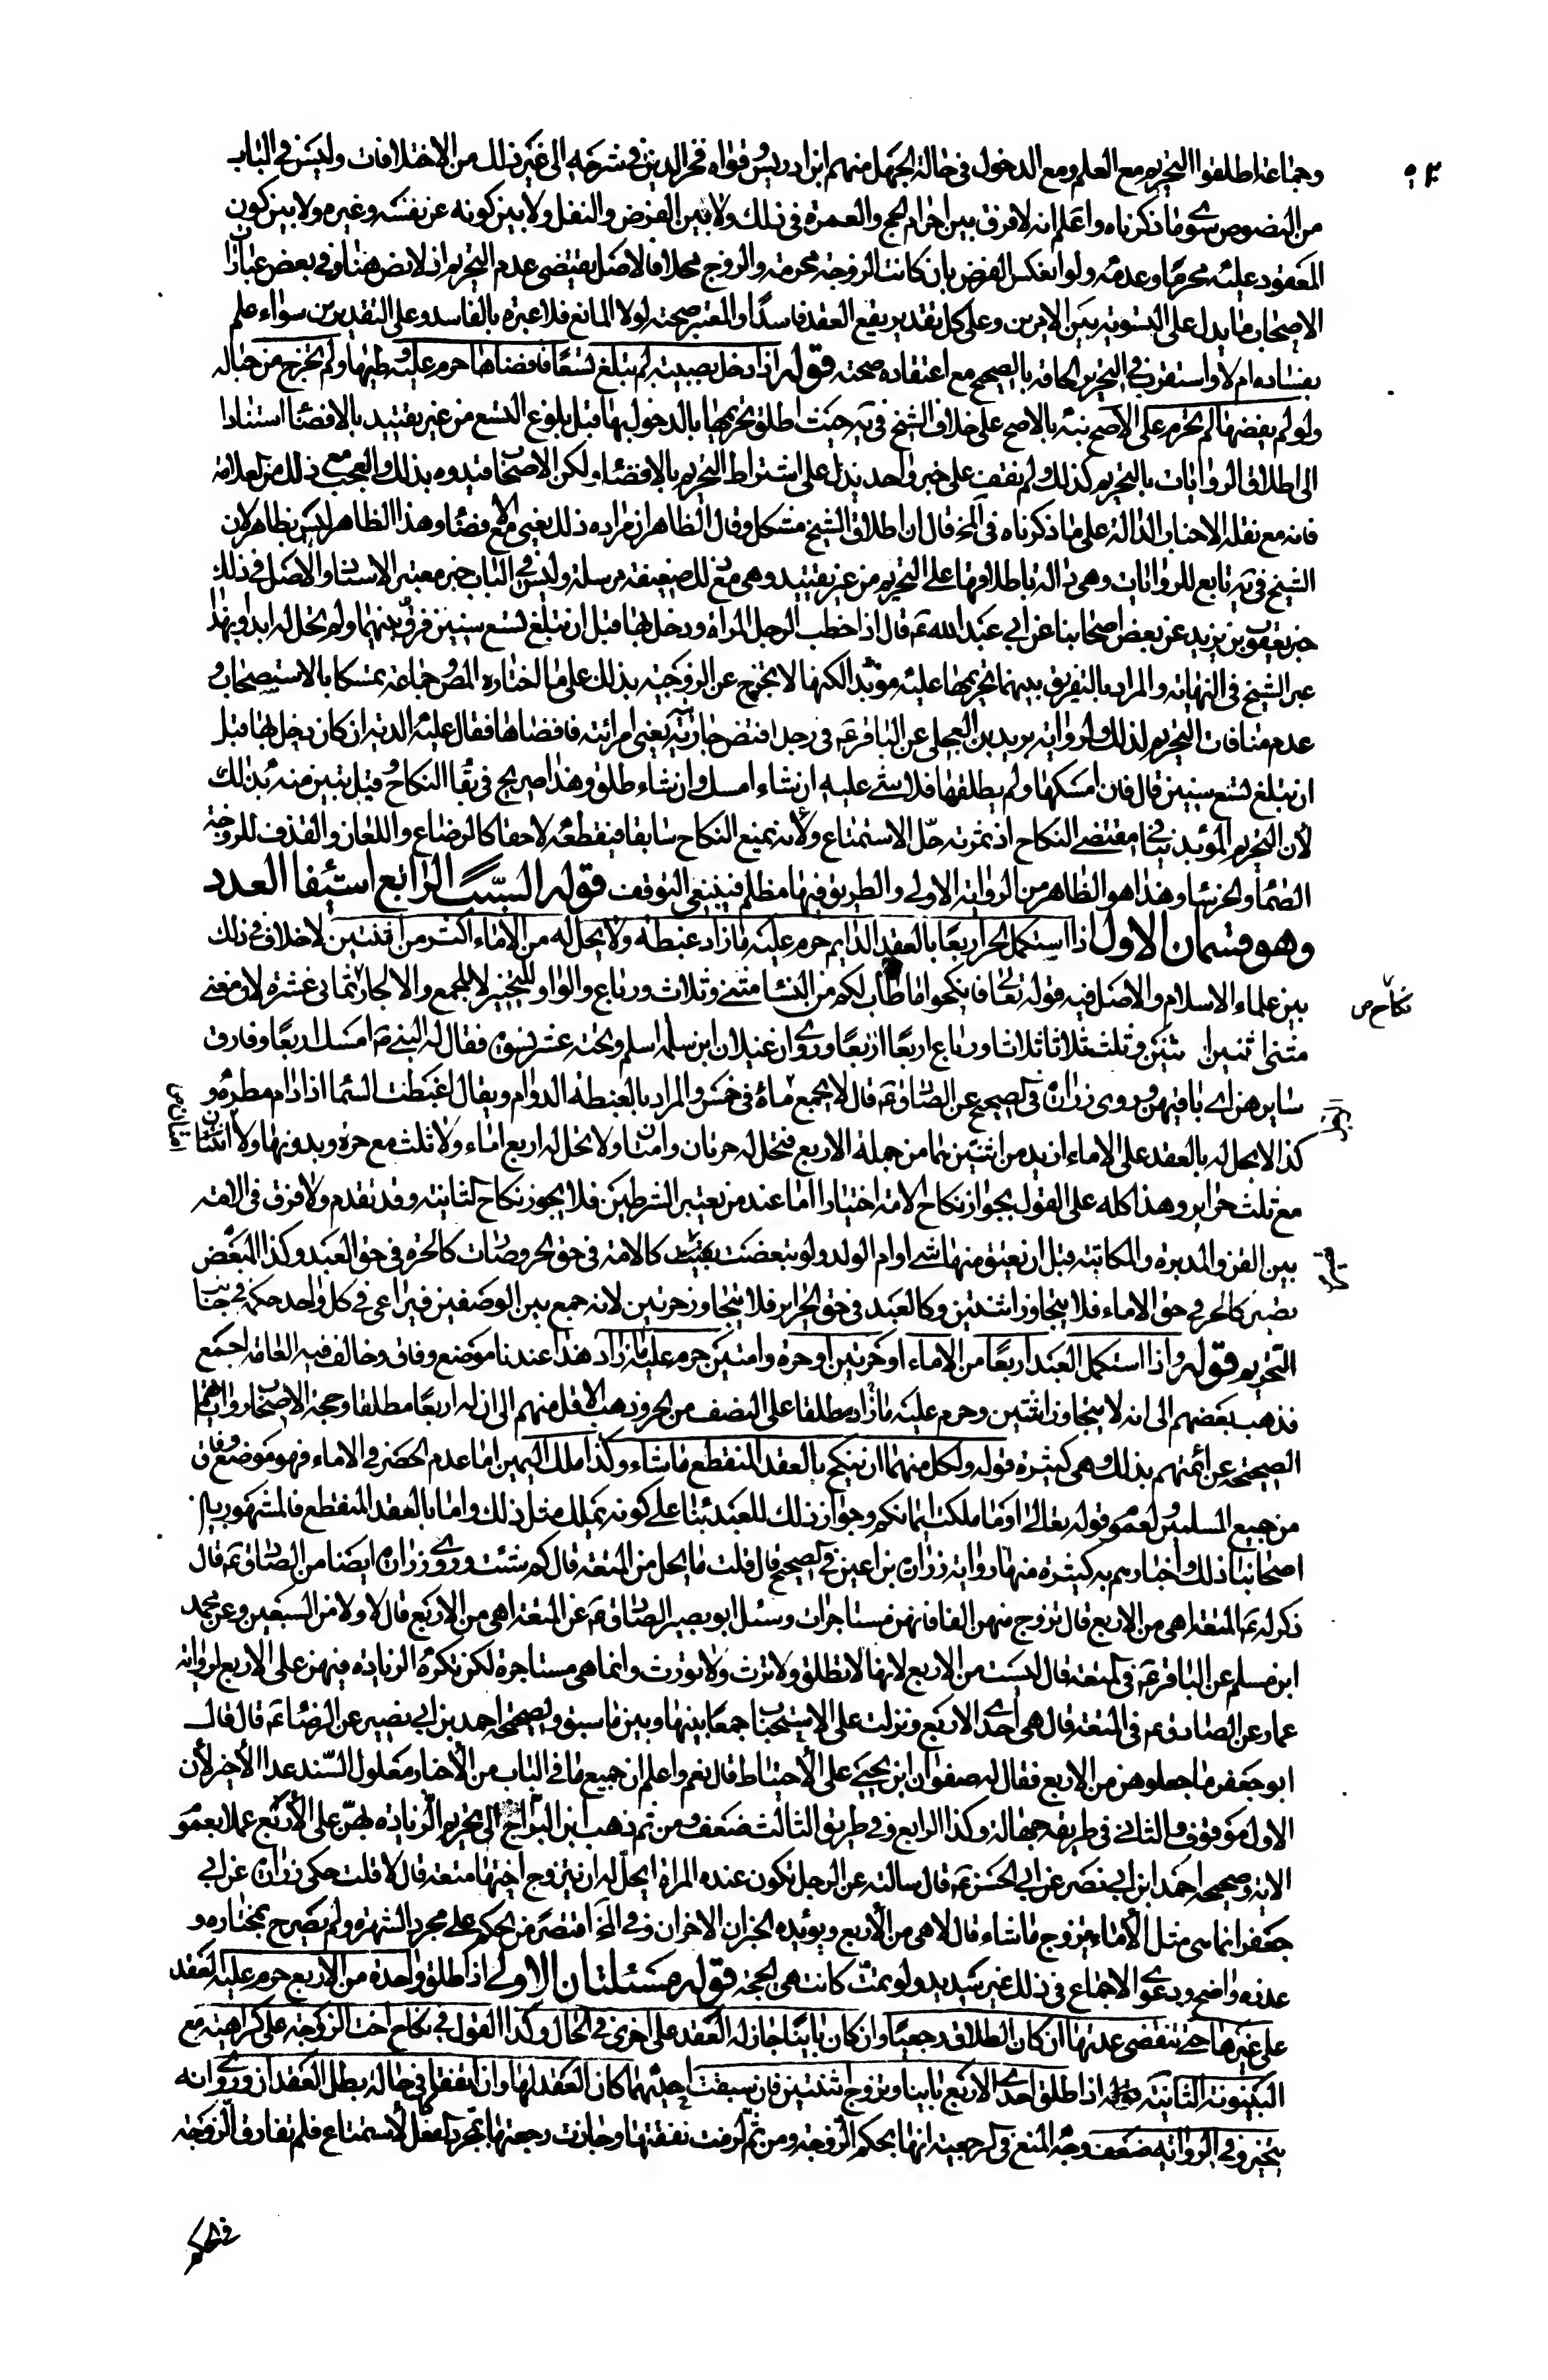 وجماعة اطلقوا التحريم مع العلم ومع الدخول في حالة الجهل منهم ابن ادريس وقواه فخر الدين في شرحه الى غير ذلك من الاختلافات وليس في الباب
من النصوص سوى ما ذكرناه واعلم انه لا فرق بين احرام الحج والعمرة في ذلك ولا بين الفرض والنفل ولا بين كونه عن نفسه وغيره ولا بين كون
المعقود عليه محرما وعدمه ولو انعكس الفرض بان كانت الزوجة محرمة والزوج محلا فالاصل يقتضي عدم التحريم اذ لا نص هنا وفي بعض عبارات
الاصحاب ما يدل على التسوية بين الامرين وعلى كل تقدير يقع العقد فاسدا والمعتبر صحته لولا المانع فلا عبرة بالفاسد وعلى التقديرين سواء علم
بفساده ام لا واستقرب في التحرير الحاقه بالصحيح مع اعتقاده صحته قوله اذا دخل بصبية لم تبلغ تسعا فافضاها حرم عليه وطيها ولم تخرج من حباله
ولو لم يفضها لم تحرم على الاصح نبه بالاصح على خلاف الشيخ في يه حيث اطلق تحريمها بالدخول بها قبل بلوغ التسع من غير تقييد بالافضاء استنادا
الى اطلاق الروايات بالتحريم كذلك ولم نقف على خبر واحد يدل على اشتراط التحريم بالافضاء ولكن الاصحاب قيدوه بذلك والعجب مع ذلك من العلامة
فانه مع نقله الاخبار الدالة على ما ذكرناه في المخ قال ان اطلاق الشيخ مشكل وقال الظاهر ان مراده ذلك يعني مع الافضاء وهذا الظاهر ليس بظاهر لان
الشيخ في يه تابع للروايات وهي دالة باطلاقها على التحريم من غير تقييد وهي مع ذلك ضعيفة مرسلة وليس في الباب خبر معتبر الاسناد والاصل في ذلك
خبر يعقوب بن يزيد عن بعض اصحابنا عن ابي عبد الله ع قال اذا خطب الرجل المراة ودخل بها قبل ان تبلغ تسع سنين فرق بينهما ولم تحل له ابدا وبهذا
عبر الشيخ في النهاية والمراد بالتفريق بينهما تحريمها عليه مؤبدا لكنها لا تخرج عن الزوجية بذلك على ما اختاره المص وجماعة تمسكا بالاستصحاب و
عدم منافات التحريم لذلك ولرواية بريد بن العجلي عن الباقر ع في رجل افتض جارية يعني امرائته فافضاها فقال عليه الدية ان كان دخل بها قبل
ان تبلغ تسع سنين قال فان امسكها ولم يطلقها فلا شئ عليه ان شاء امسك وان شاء طلق وهذا صريح في بقاء النكاح وقيل تبين منه بذلك
لأن التحريم المؤبد ينافي مقتضى النكاح اذ ثمرته حل الاستمتاع ولأنه يمنع النكاح سابقا فيقطعه لاحقا كالرضاع واللعان والقذف للزوجة
الصماء والخرساء وهذا هو الظاهر من الرواية الاولى والطريق فيها مظلم فينبغي التوقف قوله السبب الرابع استيفا العدد
وهو قسمان الاول اذا استكمل الحر اربعا بالعقد الدايم حرم عليه ما زاد غبطه ولا يحل له من الاماء اكثر من اثنتين لا خلاف في ذلك
بين علماء الاسلام والاصل فيه قوله تعالى فانكحوا ما طاب لكم من النساء مثنى وثلاث ورباع والواو للتخيير لا للجمع والا لجاز ثماني عشرة لان معنى
مثنى اثنين اثنين وثلث ثلاثا ثلاثا ورباع اربعا اربعا وروى ان غيلان ابن سلمه اسلم وتحته عشر نسوة فقال له النبي ص امسك اربعا وفارق
سايرهن اي باقيهن وروى زرارة في الصحيح عن الصادق ع قال لا يجمع ماءه في خمس والمراد بالغبطة الدوام ويقال اغبطت السماء اذا دام مطره و
كذا لا يحل له بالعقد على الاماء ازيد من اثنتين هما من جملة الاربع فتحل له حرتان وامتان ولا تحل له اربع اماء ولا ثلث مع حرة وبدونها ولا امتان
مع ثلث حراير وهذا كله على القول بجواز نكاح الامة اختيارا اما عند من يعتبر الشرطين فلا يجوز نكاح الثانية وقد تقدم ولا فرق في الامة
بين القن والمدبرة والمكاتبة قبل ان يعتق منها شئ او ام الولد ولو تبعضت كالامة في حق الحر وصارت كالحرة في حق العبد وكذا المبعض
يصير كالحر في حق الاماء فلا يتجاوز اثنتين وكالعبد في حق الحراير فلا يتجاوز حرتين لانه جمع بين الوصفين فيراعى في كل واحد حكمه في جانب
التحريم قوله واذا استكمل العبد اربعا من الاماء او حرتين او حرة وامتين حرم عليه ما زاد هذا عندنا موضع وفاق وخالف فيه العامة اجمع
فذهب بعضهم الى انه لا يتجاوز اثنتين وحرم عليه ما زاد مطلقا على النصف من الحر وذهب الاقل منهم الى ان له اربعا مطلقا وحجة الاصحاب رواياتهم
الصحيحة عن ائمتهم بذلك وهي كثيرة قوله ولكل منهما ان ينكح بالعقد المنقطع ما شاء وكذا ملك اليمين اما عدم الحصر في الاماء فهو موضع وفاق
من جميع المسلمين لعموم قوله تعالى او ما ملكت ايمانكم وجواز ذلك للعبد بناء على كونه يملك مثل ذلك واما بالعقد المنقطع فالمشهور بين
اصحابنا ذلك واخبارهم به كثيرة منها رواية زرارة بن اعين في الصحيح قال قلت ما يحل من المتعة قال كم شئت وروى زرارة ايضا من الصادق ع قال
ذكر له ع المتعة اهي من الاربع قال تزوج منهن الفا فانهن مستاجرات وسئل ابو بصير الصادق ع عن المتعة اهي من الاربع قال لا ولا من السبعين وعن محمد
ابن مسلم عن الباقر ع في المتعة قال ليست من الاربع لانها لا تطلق ولا ترث ولا تورث وانما هي مستاجرة لكن تكره الزيادة فيهن على الاربع لرواية
عمار عن الصادق ع في المتعة قال هي احدى الاربع ونزلت على الاستحباب جمعا بينها وبين ما سبق ولصحيحة احمد بن ابي نصير عن الرضا ع قال قال
ابو جعفر ما جعلوهن من الاربع فقال له صفوان ابن يحيى على الاحتياط قال نعم واعلم ان جميع ما في الباب من الأخبار معلول السند عدا الأخير لأن
الاول موقوف والثاني في طريقه جهالة وكذا الرابع وفي طريق الثالث ضعف ومن ثم ذهب ابن البراج الى تحريم الزيادة بهن على الأربع عملا بعموم
الاية وصحيحة احمد ابن ابي نصر عن ابي الحسن ع قال سالته عن الرجل تكون عنده المراة ايحل له ان يتزوج اختها متعة قال لا قلت حكى زرارة عن ابي
جعفر انما هي مثل الأماء يتزوج ما شاء قال لا هي من الأربع ويؤيده الخبران الاخران وفي المخ اقتصر من الحكم على مجرد الشهرة ولم يصرح بمختاره و
عذره واضح ودعوى الاجماع في ذلك غير سديد ولو تمت كانت هي الحجة قوله مسئلتان الاولى اذا طلق واحدة من الاربع حرم عليه العقد
على غيرها حتى تنقضي عدتها ان كان الطلاق رجعيا وان كان باينا جاز له العقد على اخرى في الحال وكذا القول في نكاح اخت الزوجة على كراهية مع
البينونة الثانية قوله اذا طلق احدى الاربع باينا وتزوج اثنتين فان سبقت احديهما كان العقد لها وان اتفقتا في حالة بطل العقدان وروى انه
يتخير وفي الرواية ضعف وجه المنع في الرجعية انها بحكم الزوجة ومن ثم لزمت نفقتها وجازت رجعتها بمجرد الفعل الأستمتاع فلم تفارق الزوجة